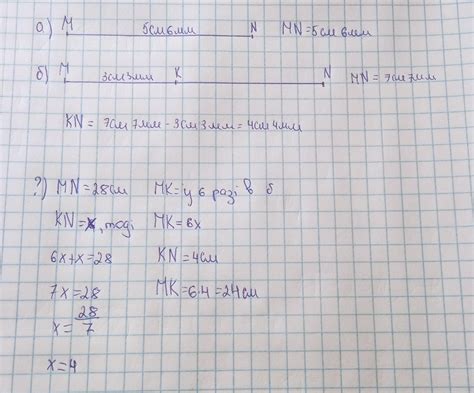 а) M 5см6мм N MN=5см6мм
б) M 3см3мм K N MN=7см7мм
KN = 7см7мм-3см3мм=4см4мм
?) MN=28см MK=у 6 разі в б
KN=x, тоді MK=6x
6x+x=28 KN=4см
7x=28 MK=6·4=24см
x=28/7
x=4